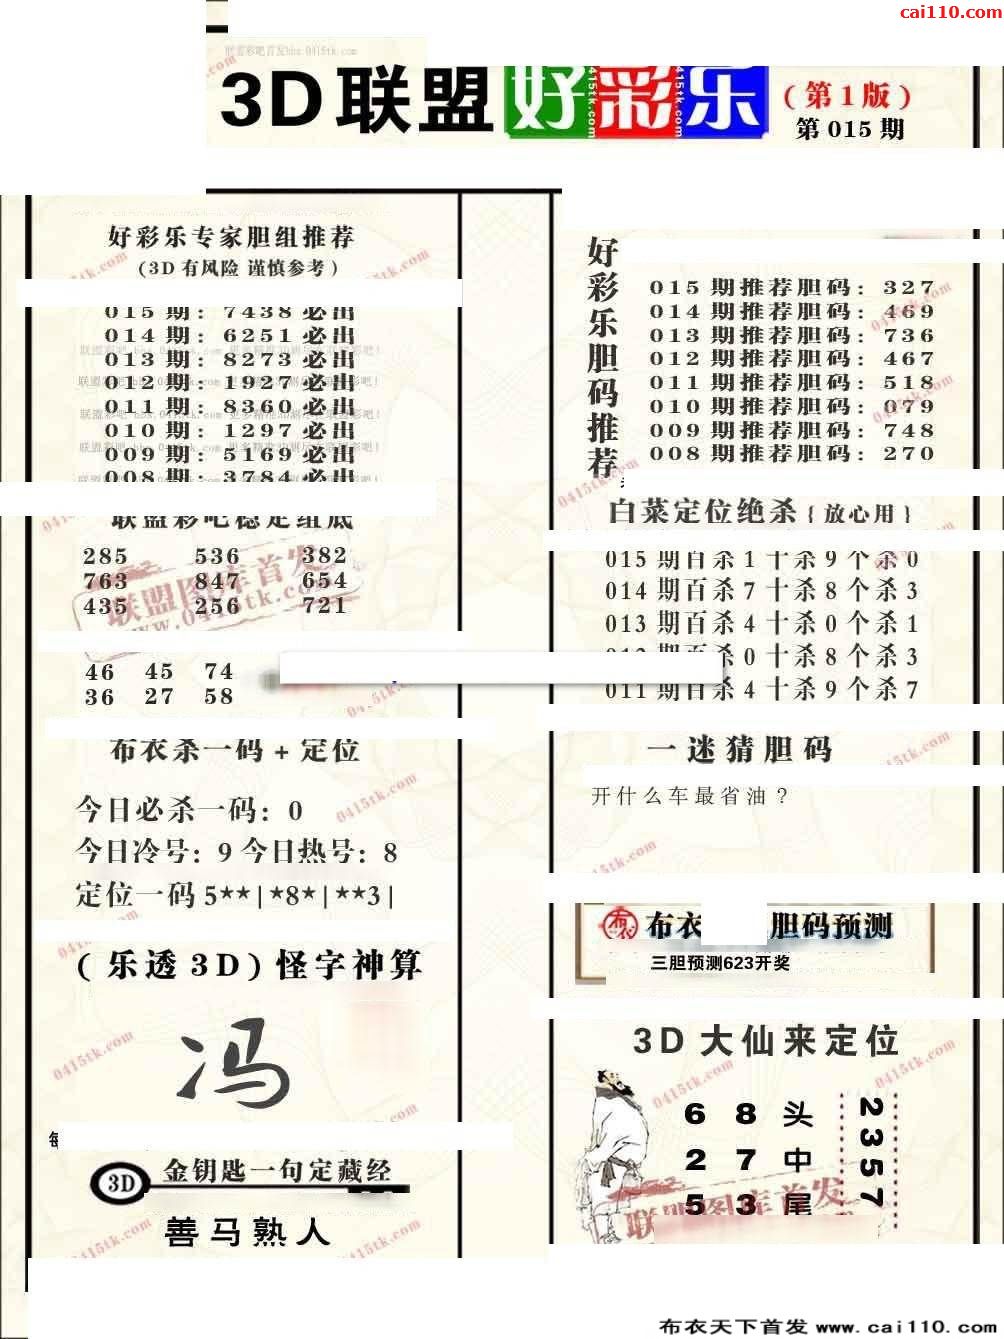 cai110.com
联盟彩吧首发bbs.0415tk.com
3D联盟好彩乐
(第1版)
第015期
好彩乐专家胆组推荐
(3D有风险 谨慎参考)
015期: 7438必出
014期: 6251必出
013期: 8273必出
012期: 1927必出
011期: 8360必出
010期: 1297必出
009期: 5169必出
008期: 3784必出
联盟彩吧稳定组底
285 536 382
763 847 654
435 256 721
联盟图库首发
www.0415tk.com
46 45 74
36 27 58
布衣杀一码+定位
今日必杀一码: 0
今日冷号: 9 今日热号: 8
定位一码 5★★|★8★|★★3|
(乐透3D)怪字神算
冯
每
3D
金钥匙一句定藏经
善马熟人
好彩乐胆码推荐
015期推荐胆码: 327
014期推荐胆码: 469
013期推荐胆码: 736
012期推荐胆码: 467
011期推荐胆码: 518
010期推荐胆码: 079
009期推荐胆码: 748
008期推荐胆码: 270
白菜定位绝杀{放心用}
015期百杀1十杀9个杀0
014期百杀7十杀8个杀3
013期百杀4十杀0个杀1
012期百杀0十杀8个杀3
011期百杀4十杀9个杀7
一迷猜胆码
开什么车最省油?
布衣
布衣 胆码预测
三胆预测623开奖
3D大仙来定位
6 8 头
2 7 中
5 3 尾
2357
联盟图库首发
布衣天下首发 www.cai110.com